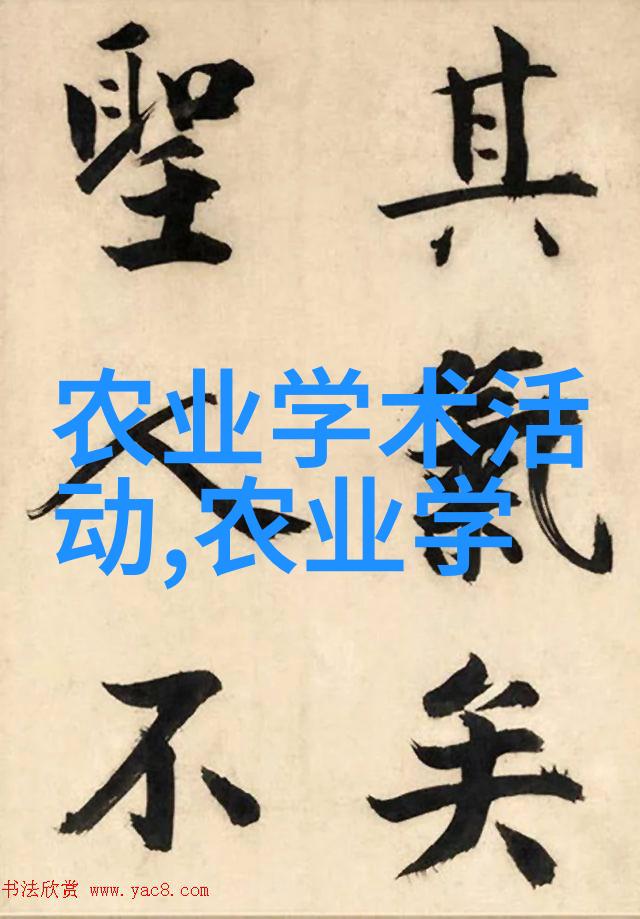 其矣
聖人不
农业学术活
动,农业学
书法欣赏 www.yac8.com